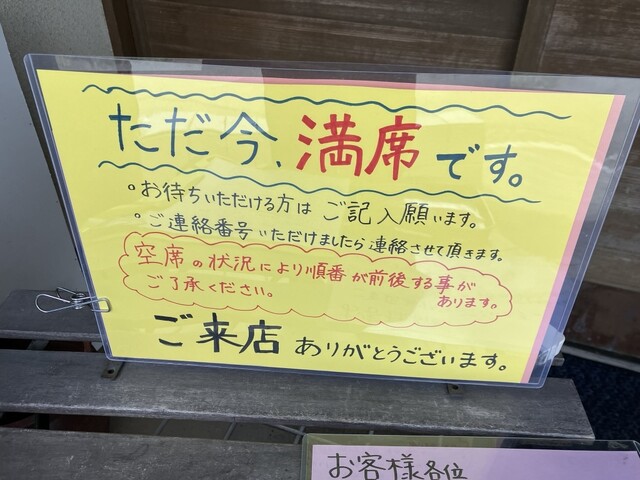 ただ今、満席です。
。お待ちいただける方は ご記入願います。
。ご連絡番号いただけましたら連絡させて頂きます。
空席の状況により順番が前後する事が
あります。
ご了承ください。
ご来店 ありがとうございます。
お客様各位